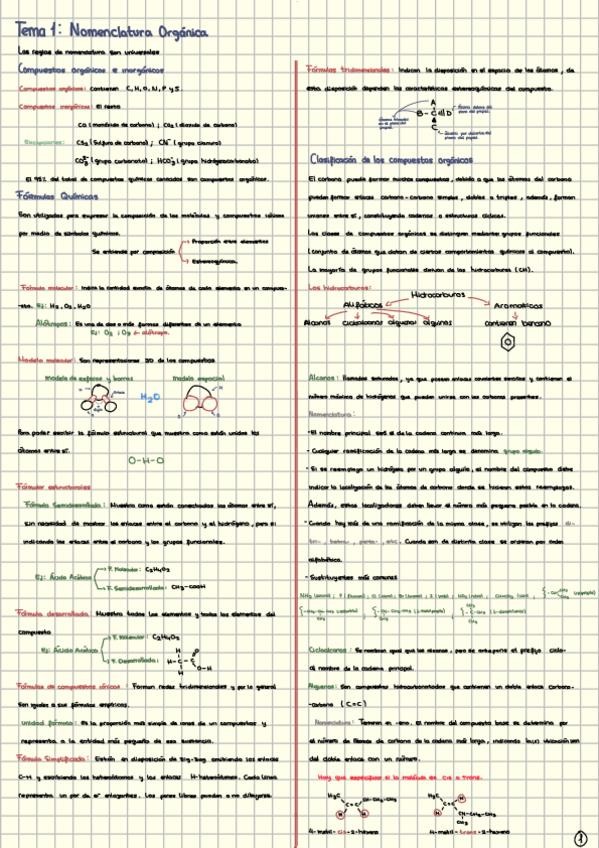 Tema 1: Nomenclatura Orgánica
Las reglas de nomenclatura son universales
Compuestos orgánicos e inorgánicos
Compuestos orgánicos: Contienen C, H, O, N, P y S.
Compuestos inorgánicos: El resto
CO (monóxido de carbono); CO₂ (dióxido de carbono)
Excepciones: CS₂ (Sulfuro de carbono); CN⁻ (grupo cianuro)
CO₃²⁻ (grupo carbonato); HCO₃⁻ (grupo hidrogenocarbonato)
El 95% del total de compuestos químicos conocidos son compuestos orgánicos.
Fórmulas Químicas
Son utilizadas para expresar la composición de las moléculas y compuestos iónicos
por medio de símbolos químicos.
Se entiende por composición
Proporción entre elementos
Estereoquímica.
Fórmula molecular: Indica la cantidad exacta de átomos de cada elemento en un compues-
-to. Ej: H₂, O₂, H₂O
Alótropos: Es una de dos o más formas diferentes de un elemento
Ej: O₂ ; O₃ → alótropos.
Modelo molecular: Son representaciones 3D de los compuestos
modelo de esferas y barras
modelo espacial
H₂O
Para poder escribir la fórmula estructural que muestra como están unidos los
átomos entre sí.
O-H-O
Fórmulas estructurales
Fórmula Semidesarrollada: Muestra como están conectados los átomos entre sí,
sin necesidad de mostrar los enlaces entre el carbono y el hidrógeno, pero sí
indicando los enlaces entre el carbono y los grupos funcionales.
Ej: Ácido Acético
F. Molecular: C₂H₄O₂
F. Semidesarrollada: CH₃-COOH
Fórmula desarrollada: Muestra todos los elementos y todos los elementos del
compuesto
Ej: Ácido Acético
F. Molecular: C₂H₄O₂
F. Desarrollada:
Fórmulas de compuestos iónicos: Forman redes tridimensionales y por lo general
son iguales a sus fórmulas empíricas.
Unidad fórmula: Es la proporción más simple de iones de un compuestos y
representa a la entidad más pequeña de esa sustancia.
Fórmula Simplificada: Están en disposición de zig-zag omitiendo los enlaces
C-H y escribiendo los heteroátomos y los enlaces H-heteroátomos. Cada línea
representa un par de e⁻ enlazantes. Los pares libres pueden o no dibujarse.
Fórmulas tridimensionales: Indican la disposición en el espacio de los átomos, de
esta disposición dependen las características estereoquímicas del compuesto.
Clasificación de los compuestos orgánicos
El carbono puede formar muchos compuestos, debido a que los átomos del carbono
pueden formar enlaces carbono-carbono simples, dobles o triples, además, forman
uniones entre sí, constituyendo cadenas o estructuras cíclicas.
Las clases de compuestos orgánicos se distinguen mediante grupos funcionales
(conjunto de átomos que dotan de ciertos comportamientos químicos al compuesto).
La mayoría de grupos funcionales derivan de los hidrocarburos (CH).
Los hidrocarburos:
Hidrocarburos
Alifáticos
Aromáticos
Alcanos Cicloalcanos alquenos alquinos
contienen benceno
Alcanos: llamados saturados, ya que poseen enlaces covalentes simples y contienen el
número máximo de hidrógenos que pueden unirse con los carbonos presentes.
Nomenclatura:
-El nombre principal será el de la cadena continua más larga.
- Cualquier ramificación de la cadena más larga se denomina grupo alquilo.
- Si se reemplaza un hidrógeno por un grupo alquilo, el nombre del compuesto debe
indicar la localización de los átomos de carbono donde se hicieron estos reemplazos.
Además, estos localizadores deben llevar el número más pequeño posible en la cadena.
- Cuando hay más de una ramificación de la misma clase, se utilizan los prefijos di-
tri-, tetra-, penta-, etc. Cuando son de distinta clase se ordenan por orden
alfabético.
- Sustituyentes más comunes
Cicloalcanos: Se nombran igual que los alcanos, pero se antepone el prefijo ciclo-
al nombre de la cadena principal.
Alquenos: Son compuestos hidrocarbonados que contienen un doble enlace Carbono-
-carbono (C=C)
Nomenclatura: Terminan en -eno. El nombre del compuesto base se determina por
el número de átomos de carbono de la cadena más larga, indicando la(s) ubicación(es)
del doble enlace con un número.
Hay que especificar si la molécula es cis o trans.
4-metil-cis-2-hexeno
4-metil-trans-2-hexeno
1